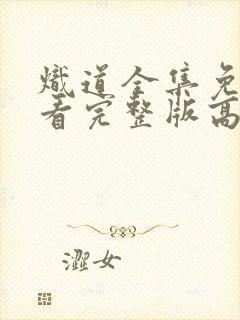 熾道全集免
看完整版高
澀女